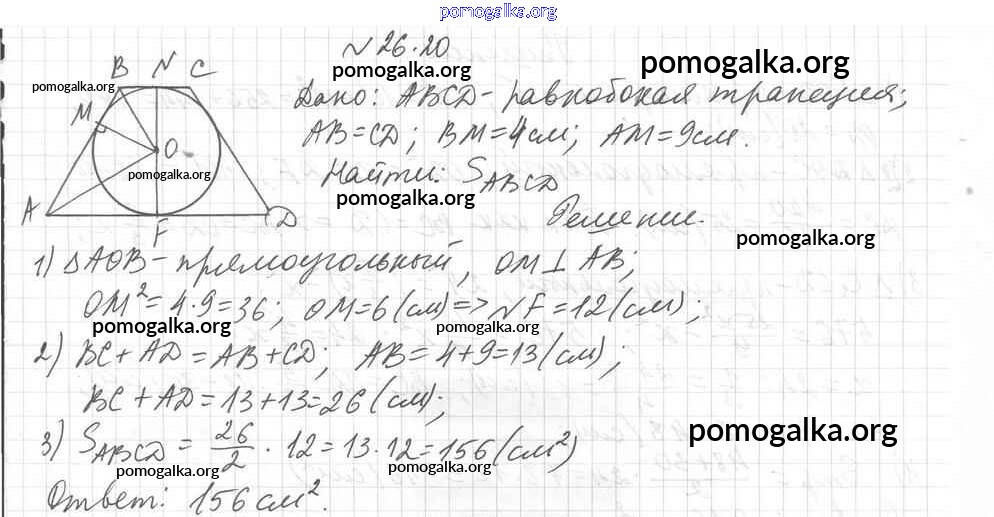 pomogalka.org
№ 26.20
pomogalka.org
pomogalka.org
B N C
pomogalka.org
Дано: ABCD - равнобокая трапеция;
M
AB = CD; BM = 4см; AM = 9см.
O
pomogalka.org
Найти: S ABCD
pomogalka.org
A F D
Решение.
pomogalka.org
1) ΔAOB - прямоугольный, OM ⊥ AB;
OM² = 4·9 = 36; OM = 6 (см) => NF = 12 (см);
pomogalka.org
pomogalka.org
2) BC + AD = AB + CD; AB = 4+9 = 13 (см);
BC + AD = 13 + 13 = 26 (см);
pomogalka.org
3) S ABCD = 26/2 · 12 = 13·12 = 156 (см²)
pomogalka.org
pomogalka.org
Ответ: 156 см².